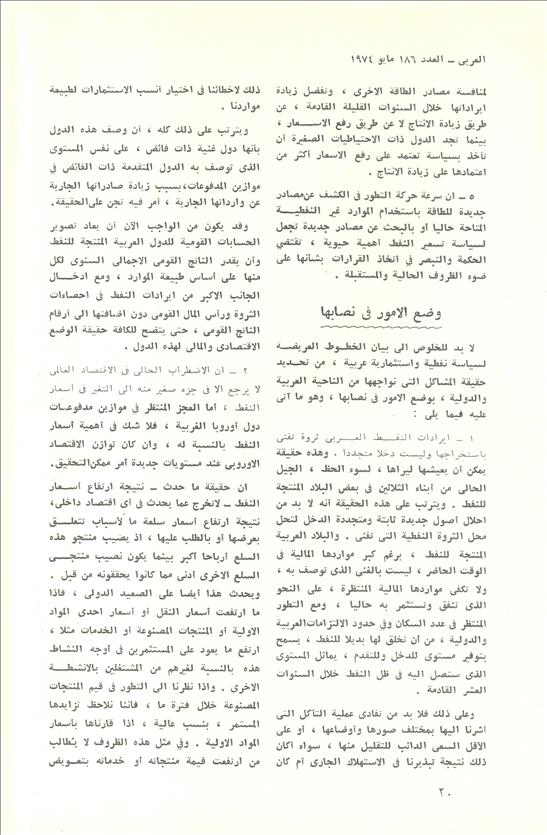 العربى ــ العدد ١٨٦ مايو ١٩٧٤
لمنافسة مصادر الطاقة الاخرى ، وتفضل زيادة
ايراداتها خلال السنوات القليلة القادمة ، عن
طريق زيادة الانتاج لا عن طريق رفع الاسـعار ،
بينما تجد الدول ذات الاحتياطيات الصغيرة أن
تأخذ بسياسة تعتمد على رفع الاسعار أكثر من
اعتمادها على زيادة الانتاج .
٥ ــ ان سرعة حركة التطور فى الكشف عن مصادر
جديدة للطاقة باستخدام الموارد غير النفطيــة
المتاحة حاليا أو بالبحث عن مصادر جديدة تجعل
لسياسة تسعير النفط أهمية حيوية ، تقتضي
الحكمة والتبصر في اتخاذ القرارات بشأنها على
ضوء الظروف الحالية والمستقبلة .
وضع الامور فى نصابها
لا بد للخلوص الى بيان الخطـوط العريضـة
لسياسة نفطية واستثمارية عربية ، من تحـديد
حقيقة المشاكل التى نواجهها من الناحية العربية
والدولية ، بوضع الامور فى نصابها ، وهو ما آتى
عليه فيما يلى :
١ ــ ايرادات النفـط العـربى ثروة تفنى
باستخراجها وليست دخلا متجددا . وهذه حقيقة
يمكن أن يعيشها ليراها ، لسوء الحظ ، الجيل
الحالى من أبناء الثلاثين فى بعض البلاد المنتجة
للنفط . ويترتب على هذه الحقيقة أنه لا بد من
احلال أصول جديدة ثابتة ومتجددة الدخل لتحل
محل الثروة النفطية التى تفنى . والبلاد العربية
المنتجة للنفط ، برغم كبر مواردها المالية فى
الوقت الحاضر ، ليست بالغنى الذى توصف به ،
ولا تكفى مواردها المالية المنتظرة ، على النحو
الذى تنفق وتستثمر به حاليا ، ومع التطور
المنتظر فى عدد السكان وفى حدود الالتزامات العربية
والدولية ، من أن تخلق لها بديلا للنفط ، يسمح
بتوفير مستوى للدخل وللتقدم ، يماثل المستوى
الذى ستصل اليه فى ظل النفط خلال السنوات
العشر القادمة .
وعلى ذلك فلا بد من تفادى عملية التآكل التى
أشرنا اليها بمختلف صورها وأوضاعها ، أو على
الأقل السعى الدائب للتقليل منها ، سواء أكان
ذلك نتيجة تبذيرنا فى الاستهلاك الجارى أم كان
ذلك لاخطائنا فى اختيار أنسب الاستثمارات لطبيعة
مواردنا .
ويترتب على ذلك كله ، أن وصف هذه الدول
بأنها دول غنية ذات فائض ، على نفس المستوى
الذى توصف به الدول المتقدمة ذات الفائض في
موازين المدفوعات، بسبب زيادة صادراتها الجارية
عن وارداتها الجارية ، أمر فيه تجن على الحقيقة.
وقد يكون من الواجب الآن أن يعاد تصوير
الحسابات القومية للدول العربية المنتجة للنفط
وأن يقدر الناتج القومى الاجمالى السنوى لكل
منها على أساس طبيعة الموارد ، ومع ادخـال
الجانب الاكبر من ايرادات النفط فى احصاءات
الثروة ورأس المال القومى دون اضافتها الى أرقام
الناتج القومى ، حتى يتضح للكافة حقيقة الوضع
الاقتصادى والمالى لهذه الدول .
٢ ــ ان الاضطراب الحالى فى الاقتصاد العالمى
لا يرجع الا فى جزء صغير منه الى التغير فى أسعار
النفط . أما العجز المنتظر فى موازين مدفوعـات
دول أوروبا الغربية ، فلا شك فى أهمية أسعار
النفط بالنسبة له ، وان كان توازن الاقتصاد
الاوروبى عند مستويات جديدة أمر ممكن التحقيق.
ان حقيقة ما حدث ــ نتيجة ارتفاع أسـعار
النفط ــ لاتخرج عما يحدث فى أى اقتصاد داخلى،
نتيجة ارتفاع أسعار سلعة ما لأسباب تتعلـق
بعرضها أو بالطلب عليها ، اذ يصيب منتجو هذه
السلع أرباحا أكبر بينما يكون نصيب منتجـى
السلع الاخرى أدنى مما كانوا يحققونه من قبل .
ويحدث هذا أيضا على الصعيد الدولى ، فاذا
ما ارتفعت أسعار النقل أو أسعار احدى المواد
الاولية أو المنتجات المصنوعة أو الخدمات مثلا ،
ارتفع ما يعود على المستثمرين فى أوجه النشاط
هذه بالنسبة لغيرهم من المشتغلين بالانشطـة
الاخرى . واذا نظرنا الى التطور فى قيم المنتجات
المصنوعة خلال فترة ما ، فاننا نلاحظ تزايدها
المستمر ، بنسب عالية ، اذا قارناها بأسعار
المواد الاولية . وفي مثل هذه الظروف لا يُطالب
من ارتفعت قيمة منتجاته أو خدماته بتعـويض
٢٠